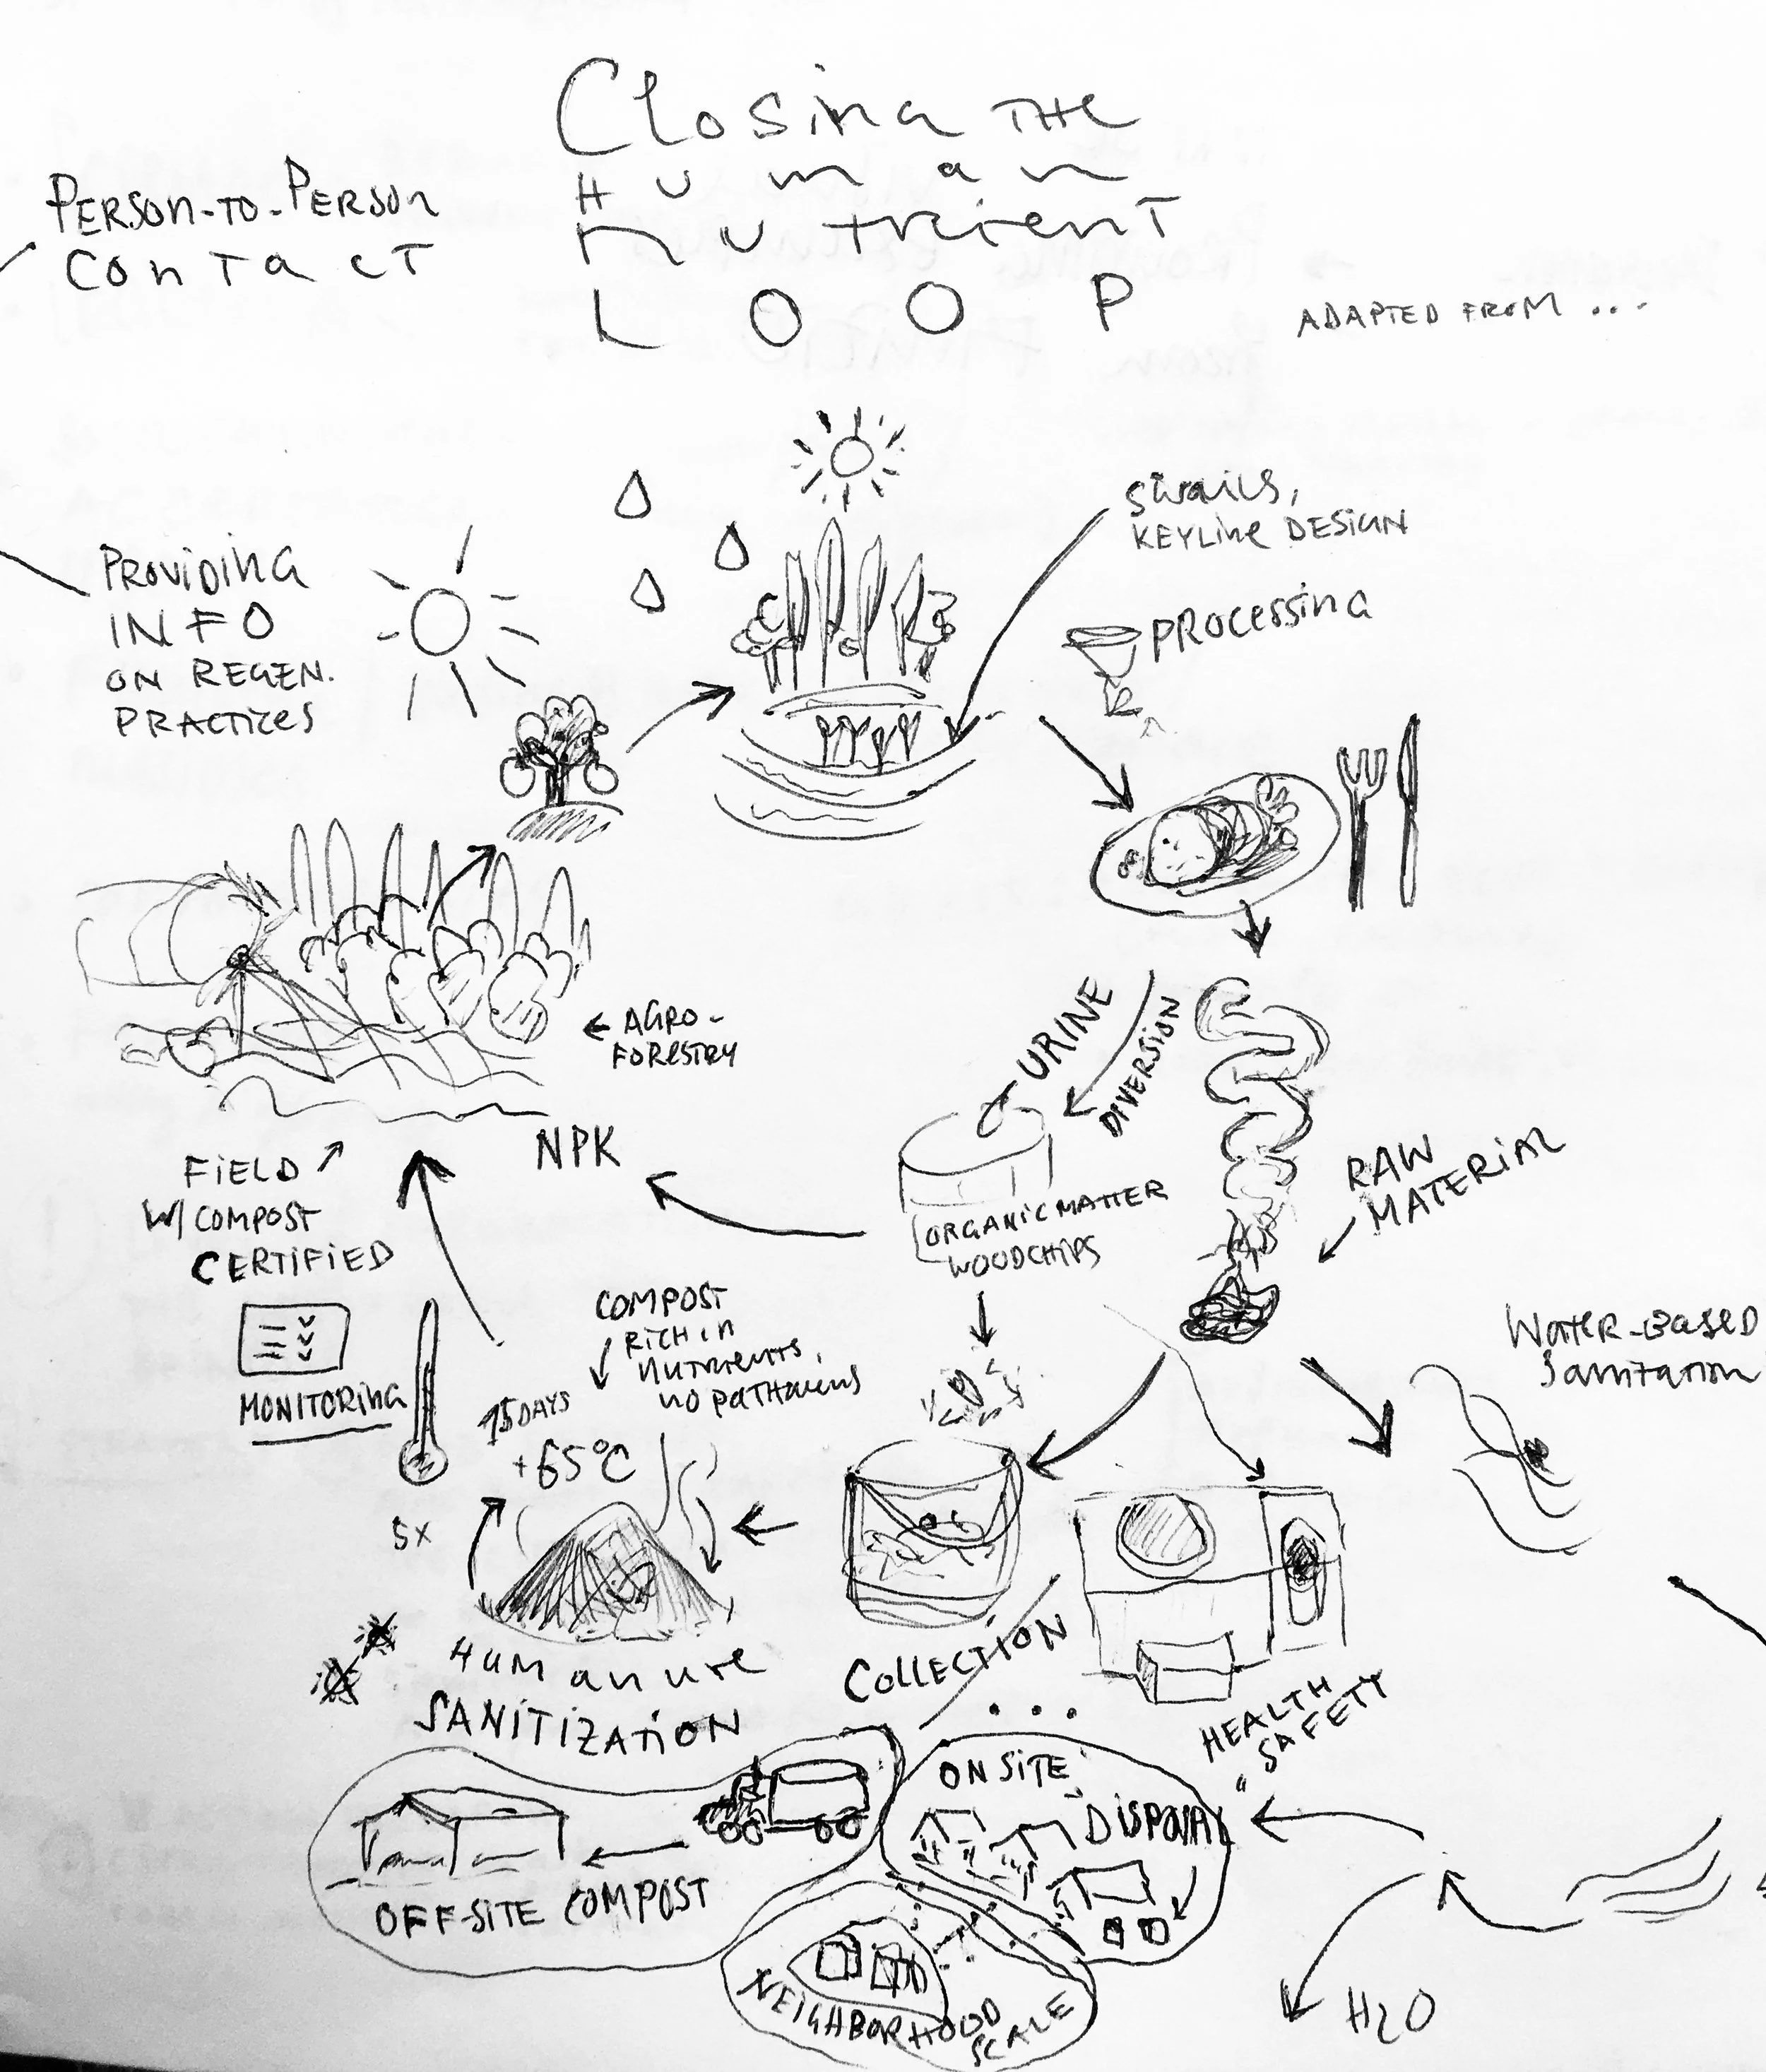 Closing THE
Human
nutrient
LOOP
PERSON-TO-PERSON
CONTACT
ADAPTED FROM ...
PROVIDING
INFO
ON REGEN.
PRACTICES
KEYLINE DESIGN
PROCESSING
← AGRO-
FORESTRY
URINE
DIVERSION
NPK
FIELD ↗
W/ COMPOST
CERTIFIED
ORGANIC MATTER
WOODCHIPS
RAW
MATERIAL
MONITORING
COMPOST
RICH in
nutrients,
no pathogens
DAYS
+65°C
5x
Water-Based
Sanitation
Humanure
SANITIZATION
COLLECTION
...
HEALTH
SAFETY
ON SITE
OFF-SITE COMPOST
NEIGHBORHOOD
SCALE
H2O